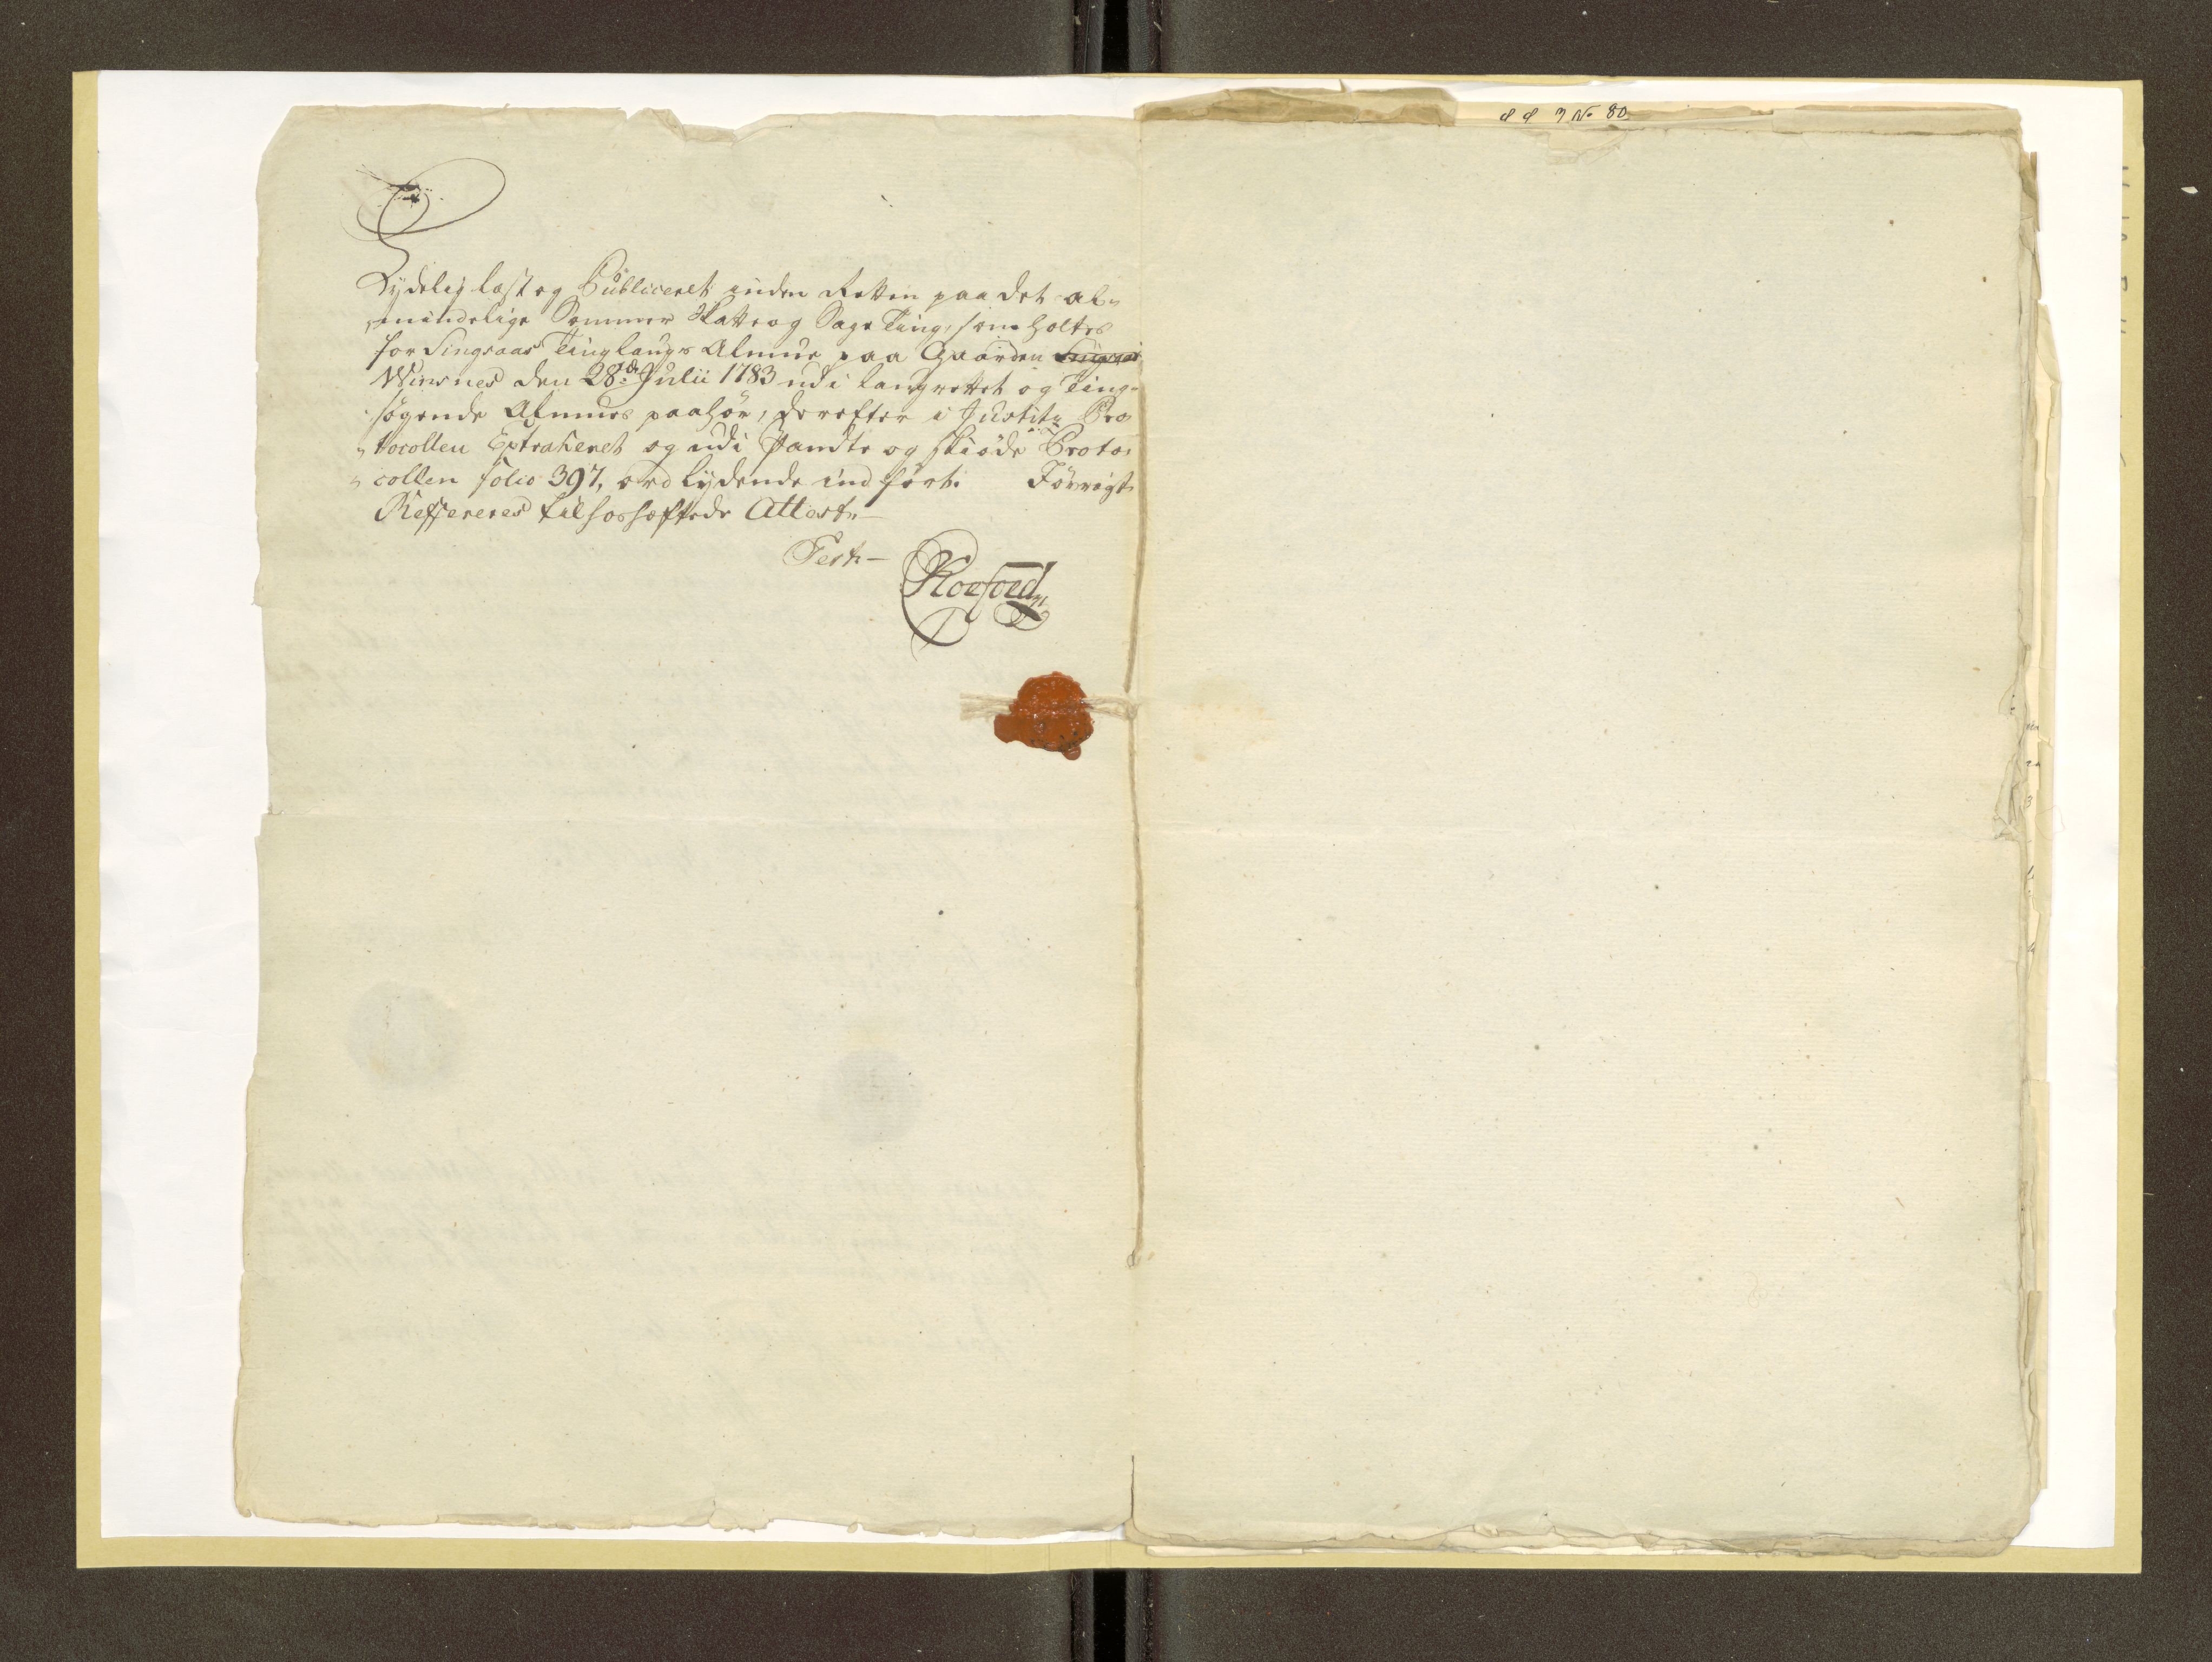 d d 3 No 80
Lydelig læst og Publiceret inden Retten paa det al„
„mindelige Sommer Skatte og Sage Ting, som holtes
for Singsaas Tinglaugs Almue paa Gaarden
Wiinsnes den 28de Julii 1783 udi laugrettet og Ting„
søgende Almues paahør, derefter i Justits Pro„
„tocollen Extraheret og udi Pandte og skiøde Proto„
„collen folio 397, ord lydende ind ført. Fövrigt
Reffereres til hoshæftede Attest.
Test.
Koefoed